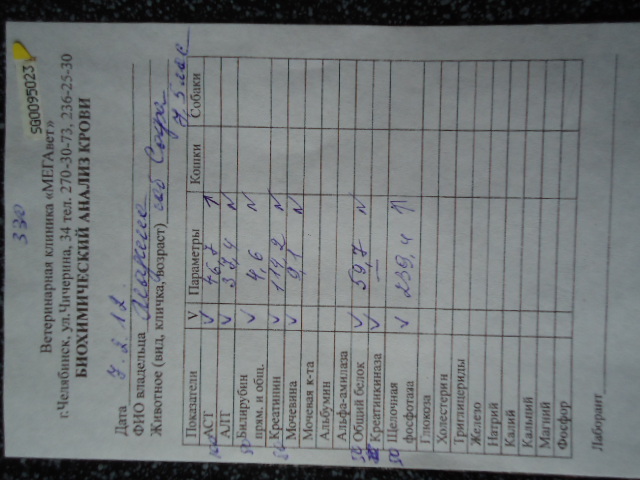 330
SG0095023
Ветеринарная клиника «МЕГАвет»
г.Челябинск, ул.Чичерина, 34 тел. 270-30-73, 236-25-30
БИОХИМИЧЕСКИЙ АНАЛИЗ КРОВИ
Дата 7.2.12
ФИО владельца
Животное (вид, кличка, возраст) соб Софа
7,5 лет
Показатели V Параметры Кошки Собаки
АСТ V 46,7 ↑
АЛТ V 39,4 N
50 Билирубин прям. и общ. V 4,6 N
Креатинин V 114,2 N
Мочевина V 9,1 N
Мочевая к-та
Альбумин
Альфа-амилаза
50 Общий белок V 59,7 N
Креатинкиназа V —
50 Щелочная фосфотаза V 239,4 ↑
Глюкоза
Холестерин
Триглицериды
Железо
Натрий
Калий
Кальций
Магний
Фосфор
Лаборант